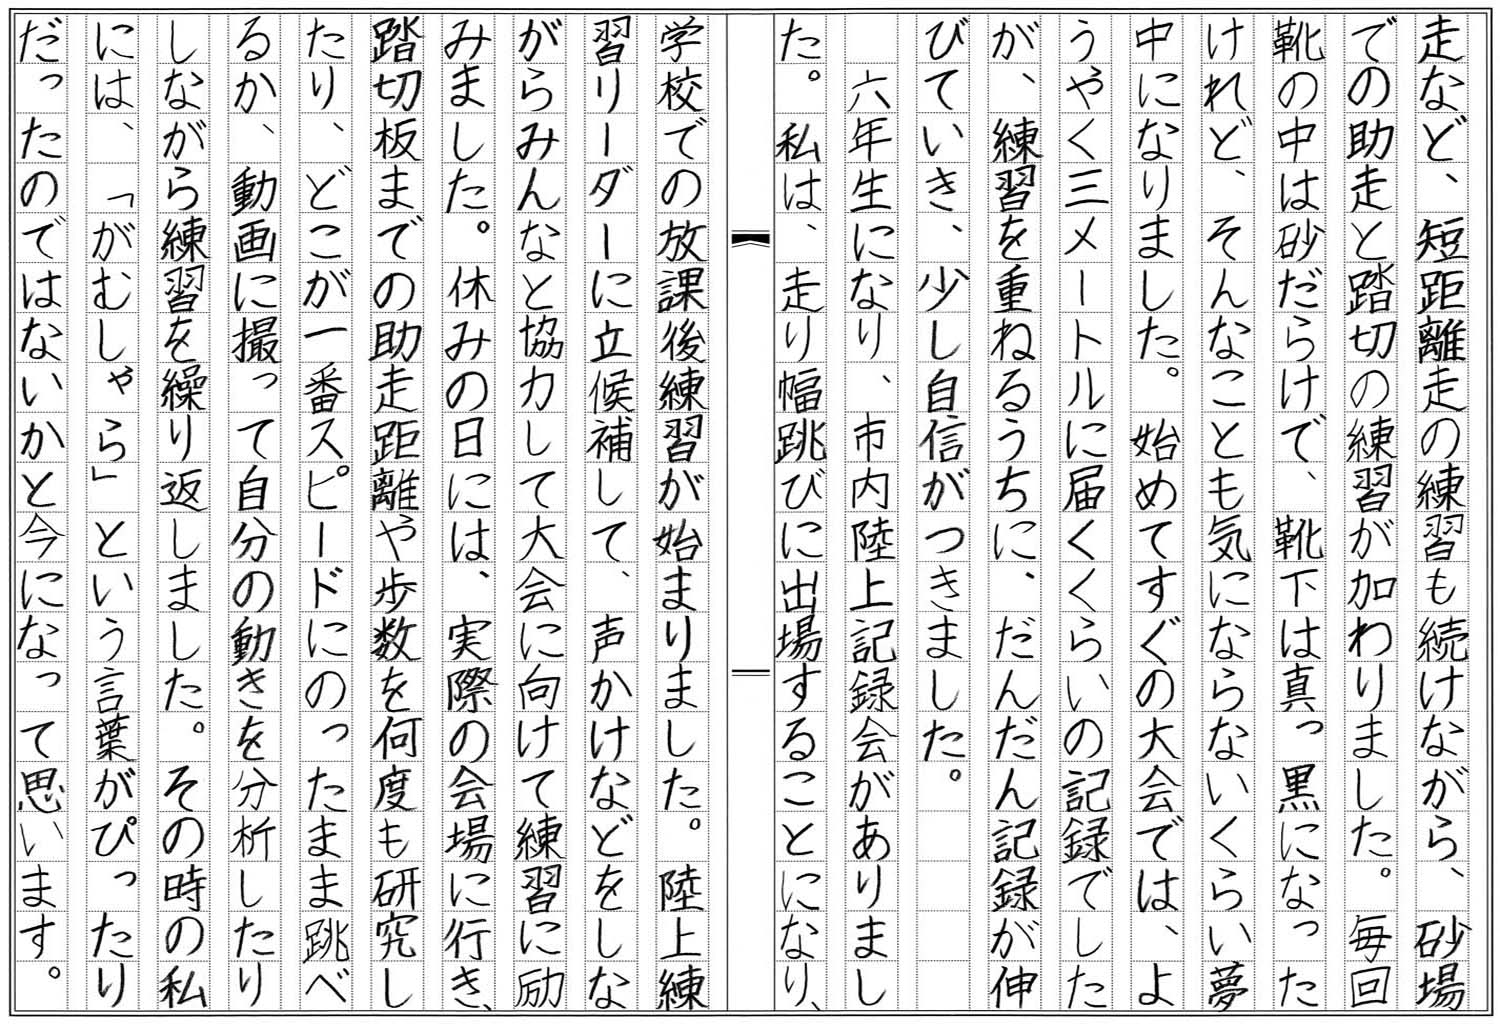 走など、短距離走の練習も続けながら、砂場
での助走と踏切の練習が加わりました。毎回
靴の中は砂だらけで、靴下は真っ黒になった
けれど、そんなことも気にならないくらい夢
中になりました。始めてすぐの大会では、よ
うやく三メートルに届くくらいの記録でした
が、練習を重ねるうちに、だんだん記録が伸
びていき、少し自信がつきました。
六年生になり、市内陸上記録会がありまし
た。私は、走り幅跳びに出場することになり、
学校での放課後練習が始まりました。陸上練
習リーダーに立候補して、声かけなどをしな
がらみんなと協力して大会に向けて練習に励
みました。休みの日には、実際の会場に行き、
踏切板までの助走距離や歩数を何度も研究し
たり、どこが一番スピードにのったまま跳べ
るか、動画に撮って自分の動きを分析したり
しながら練習を繰り返しました。その時の私
には、「がむしゃら」という言葉がぴったり
だったのではないかと今になって思います。